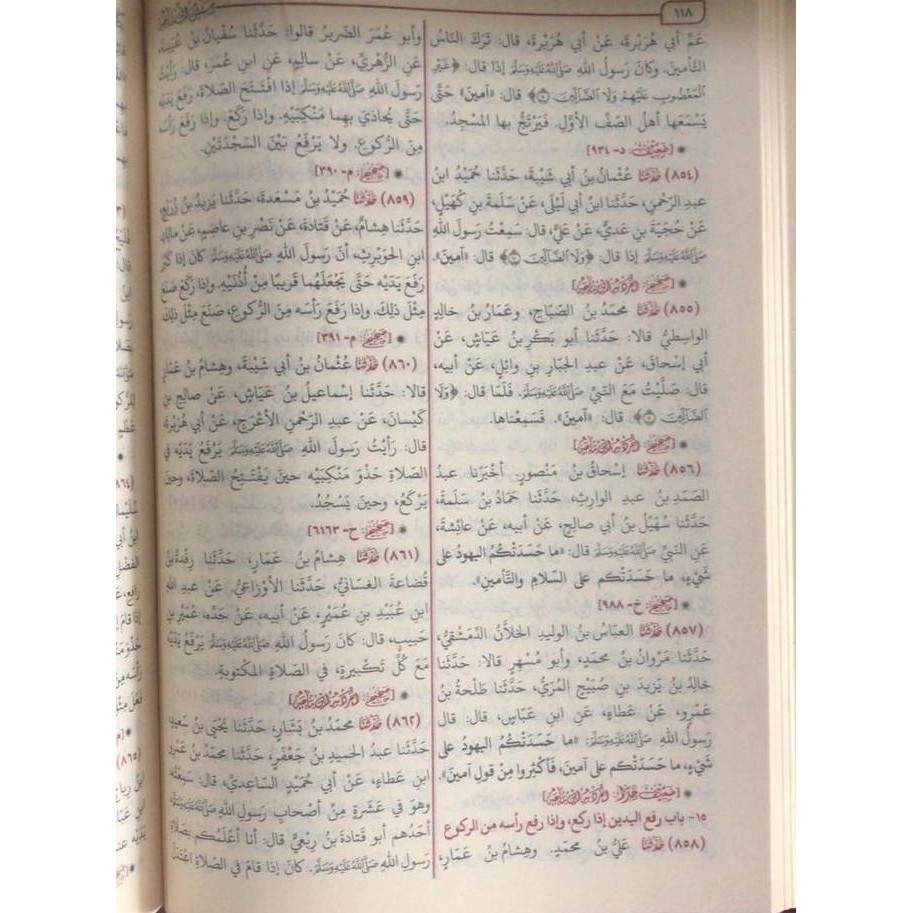 ١١٨
عَمِّ أبي هُرَيْرةَ، عَنْ أبي هُرَيْرَةَ، قال: تَرَكَ النَّاسُ
التَّأمينَ. وكانَ رَسولُ اللهِ ﷺ إذا قال: ﴿غَيْرِ
الْمَغْضُوبِ عَلَيْهِمْ وَلَا الضَّالِّينَ﴾ قال: «آمينَ» حَتَّى
يَسْمَعَها أهلُ الصَّفِّ الأوَّلِ. فَيَرْتَجُّ بها المسْجِدُ.
[ضعيف: د- ٩٣٤]
(٨٥٤) حَدَّثَنَا عُثْمانُ بنُ أبي شَيْبةَ، حَدَّثَنا حُمَيْدُ ابنُ
عبدِ الرَّحمنِ، حَدَّثَنا ابنُ أبي لَيْلَى، عَنْ سَلَمةَ بنِ كُهَيْلٍ،
عَنْ حُجَيَّةَ بنِ عَديٍّ، عَنْ عَليٍّ، قال: سَمِعْتُ رَسولَ اللهِ
ﷺ إذا قال: ﴿وَلَا الضَّالِّينَ﴾ قال: «آمينَ».
[صحيح: انفرد به ابن ماجه]
(٨٥٥) حَدَّثَنَا محمَدُ بنُ الصَّبَّاحِ، وعَمَّارُ بنُ خالِدٍ
الواسِطيُّ قالا: حَدَّثَنا أبو بَكْرِ بنُ عَيَّاشٍ، عَنْ
أبي إسْحاقَ، عَنْ عبدِ الجَبَّارِ بنِ وائِلٍ، عَنْ أبيه،
قال: صَلَّيْتُ مَعَ النَّبيِّ ﷺ. فَلَمَّا قال: ﴿وَلَا
الضَّالِّينَ﴾ قال: «آمينَ». فَسَمِعْناها.
[صحيح: انفرد به ابن ماجه]
(٨٥٦) حَدَّثَنَا إسْحاقُ بنُ مَنْصورٍ. أخْبَرَنا عبدُ
الصَّمَدِ بنُ عبدِ الوارِثِ، حَدَّثَنا حَمَّادُ بنُ سَلَمةَ،
حَدَّثَنا سُهَيْلُ بنُ أبي صالِحٍ، عَنْ أبيه، عَنْ عائِشةَ،
عَنِ النَّبيِّ ﷺ قال: «ما حَسَدَتْكُمُ اليهودُ على
شَيْءٍ، ما حَسَدَتْكم على السَّلامِ والتَّأمينِ».
[صحيح: خ- ٩٨٨]
(٨٥٧) حَدَّثَنَا العبَّاسُ بنُ الوليدِ الخَلَّالُ الدِّمَشْقيُّ،
حَدَّثَنا مَرْوانُ بنُ محمَدٍ، وأبو مُسْهِرٍ قالا: حَدَّثَنا
خالِدُ بنُ يَزيدَ بنِ صُبَيْحٍ المُرِّيُّ، حَدَّثَنا طَلْحةُ بنُ
عَمْرٍو، عَنْ عَطاءٍ، عَنِ ابنِ عَبَّاسٍ، قال: قال
رَسولُ اللهِ ﷺ: «ما حَسَدَتْكُمُ اليهودُ على
شَيْءٍ، ما حَسَدَتْكم على آمينَ، فَأكْثِروا مِنْ قولِ آمينَ».
[ضعيف جدا: انفرد به ابن ماجه]
١٥- باب رفع اليدين إذا ركع، وإذا رفع رأسه من الركوع
(٨٥٨) حَدَّثَنَا عَليُّ بنُ محمَدٍ. وهِشامُ بنُ عَمَّارٍ،
وأبو عُمَرَ الضَّريرُ قالوا: حَدَّثَنا سُفْيانُ بنُ عُيَيْنةَ،
عَنِ الزُّهْريِّ، عَنْ سالِمٍ، عَنِ ابنِ عُمَرَ، قال: رَأيْتُ
رَسولَ اللهِ ﷺ إذا افْتَتَحَ الصَّلاةَ، رَفَعَ يَدَيْه
حَتَّى يُحاذيَ بهِما مَنْكِبَيْهِ. وإذا رَكَعَ، وإذا رَفَعَ رَأسَه
مِنَ الرُّكوعِ. ولا يَرْفَعُ بَيْنَ السَّجْدَتَيْنِ.
[صحيح: م- ٣٩٠]
(٨٥٩) حَدَّثَنَا حُمَيْدُ بنُ مَسْعَدةَ، حَدَّثَنا يَزيدُ بنُ زُرَيْعٍ،
حَدَّثَنا هِشامٌ، عَنْ قَتادةَ، عَنْ نَصْرِ بنِ عاصِمٍ، عَنْ مالِكِ
ابنِ الحوَيْرِثِ، أنَّ رَسولَ اللهِ ﷺ كانَ إذا كَبَّرَ
رَفَعَ يَدَيْه حَتَّى يَجْعَلَهُما قَريبًا مِنْ أُذُنَيْهِ. وإذا رَكَعَ صَنَعَ
مِثْلَ ذلِكَ. وإذا رَفَعَ رَأسَه مِنَ الرُّكوعِ، صَنَعَ مِثْلَ ذلِكَ
[صحيح: م- ٣٩١]
(٨٦٠) حَدَّثَنَا عُثْمانُ بنُ أبي شَيْبةَ، وهِشامُ بنُ عَمَّارٍ
قالا: حَدَّثَنا إسْماعيلُ بنُ عَيَّاشٍ، عَنْ صالِحِ بنِ
كَيْسانَ، عَنْ عبدِ الرَّحمنِ الأعْرَجِ، عَنْ أبي هُرَيْرةَ
قال: رَأيْتُ رَسولَ اللهِ ﷺ يَرْفَعُ يَدَيْه في
الصَّلاةِ حَذْوَ مَنْكِبَيْه حينَ يَفْتَتِحُ الصَّلاةَ، وحينَ
يَرْكَعُ، وحينَ يَسْجُدُ.
[صحيح: خ- ٦١٦٣]
(٨٦١) حَدَّثَنَا هِشامُ بنُ عَمَّارٍ، حَدَّثَنا رِفْدةُ بنُ
قُضاعةَ الغسَّانيُّ، حَدَّثَنا الأوْزاعيُّ، عَنْ عبدِ اللهِ
ابنِ عُبَيْدِ بنِ عُمَيْرٍ، عَنْ أبيه، عَنْ جَدِّه، عُمَيْرِ بنِ
حَبيبٍ، قال: كانَ رَسولُ اللهِ ﷺ يَرْفَعُ يَدَيْه
مَعَ كُلِّ تَكْبيرةٍ، في الصَّلاةِ المكْتوبةِ.
[صحيح: انفرد به ابن ماجه]
(٨٦٢) حَدَّثَنَا محمَدُ بنُ بَشَّارٍ، حَدَّثَنا يَحْيَى بنُ سَعيدٍ
حَدَّثَنا عبدُ الحميدِ بنُ جَعْفَرٍ، حَدَّثَنا محمَدُ بنُ عَمْرِو
ابنِ عَطاءٍ، عَنْ أبي حُمَيْدٍ السَّاعِديِّ، قال: سَمِعْتُه
وهو في عَشَرةٍ مِنْ أصْحابِ رَسولِ اللهِ ﷺ
أحَدُهم أبو قَتادةَ بنُ رِبْعيٍّ قال: أنا أعْلَمُكم بصَلاةِ
رَسولِ اللهِ ﷺ. كانَ إذا قامَ في الصَّلاةِ اعْتَدَلَ